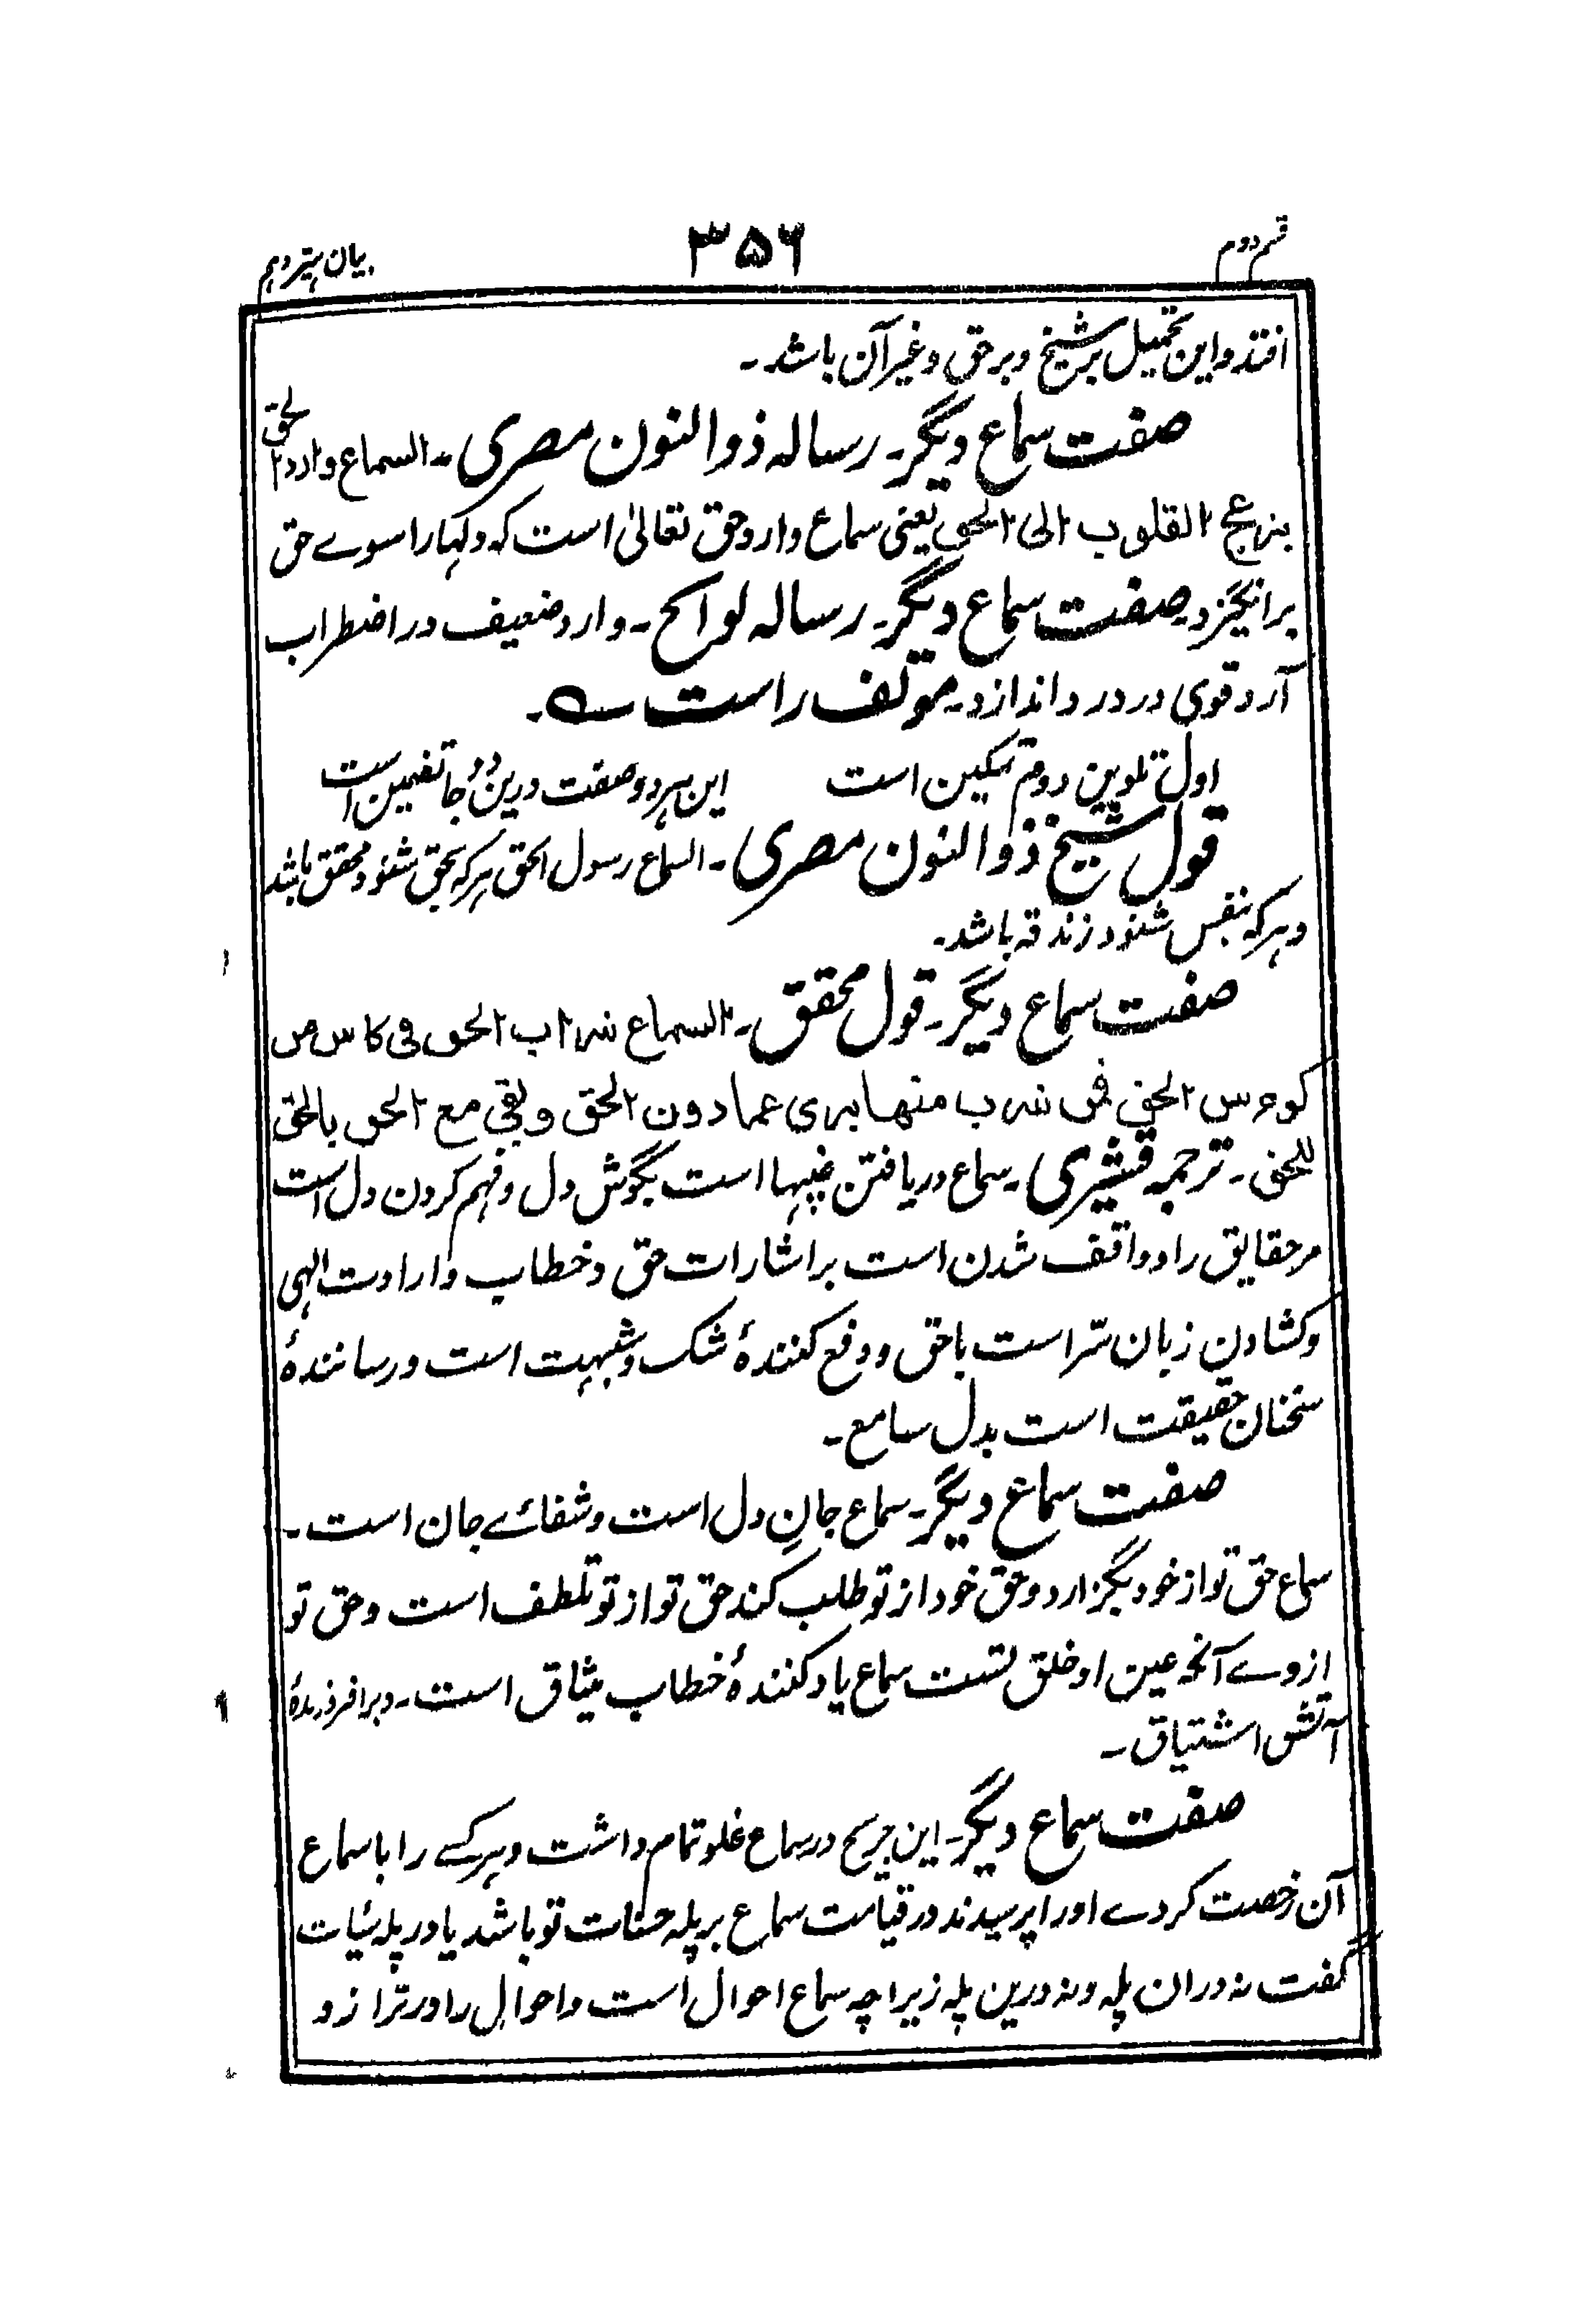 قسم دوم
۳۵۶
بیان ہیزدہم
افتد و این تحمیل بر شیخ و بر حق و غیر آن باشد۔
صفت سماع دیگر۔ رسالہ ذوالنون مصری۔ السماع وارد الحق
یزعج القلوب الی الحق یعنی سماع وارد حق تعالیٰ است کہ دلہا را سوے حق
برانگیزد۔ صفت سماع دیگر۔ رسالہ لوائح۔ وارد ضعیف در اضطراب
آرد قوی در درد اندازد۔ مؤلف راست ؎۔
اول تلوین دوم تمکین است این ہر دو صفت درین دو جا تضمین است
قول شیخ ذوالنون مصری۔ السماع رسول الحق ہر کہ بحق شنود محقق باشد
و ہر کہ بنفس شنود زندقہ باشد۔
صفت سماع دیگر۔ قول محقق۔ السماع شراب الحق فی کاس من
کووس الحق فمن شرب منها بری عما دون الحق و بقی مع الحق بالحق
للحق۔ ترجمہ قشیری۔ سماع دریافتن غیبہا است بگوش دل و فہم کردن دل است
مر حقایق را و واقف شدن است بر اشارات حق و خطاب و ارادت الہی
و کشادن زبان سرّ است با حق و دفع کنندۂ شک و شبہت است و رسانندۂ
سخنان حقیقت است بدل سامع۔
صفت سماع دیگر۔ سماع جانِ دل است و شفائے جان است۔
سماع حق تو از خود بگزارد و حق خود از تو طلب کند حق تو از تو تلطف است و حق تو
ازوے آنکہ عین او خلق تست سماع یاد کنندۂ خطاب میثاق است۔ و برافروزندۂ
آتش اشتیاق۔
صفت سماع دیگر۔ ابن جریح در سماع غلو تمام داشت و ہر کسے را با سماع
آن رخصت کردے او را پرسیدند در قیامت سماع بر پلہ حسنات تو باشد یا در پلہ سئیات
گفت نہ دران پلہ و نہ درین پلہ زیراچہ سماع احوال است و احوال را در ترازو